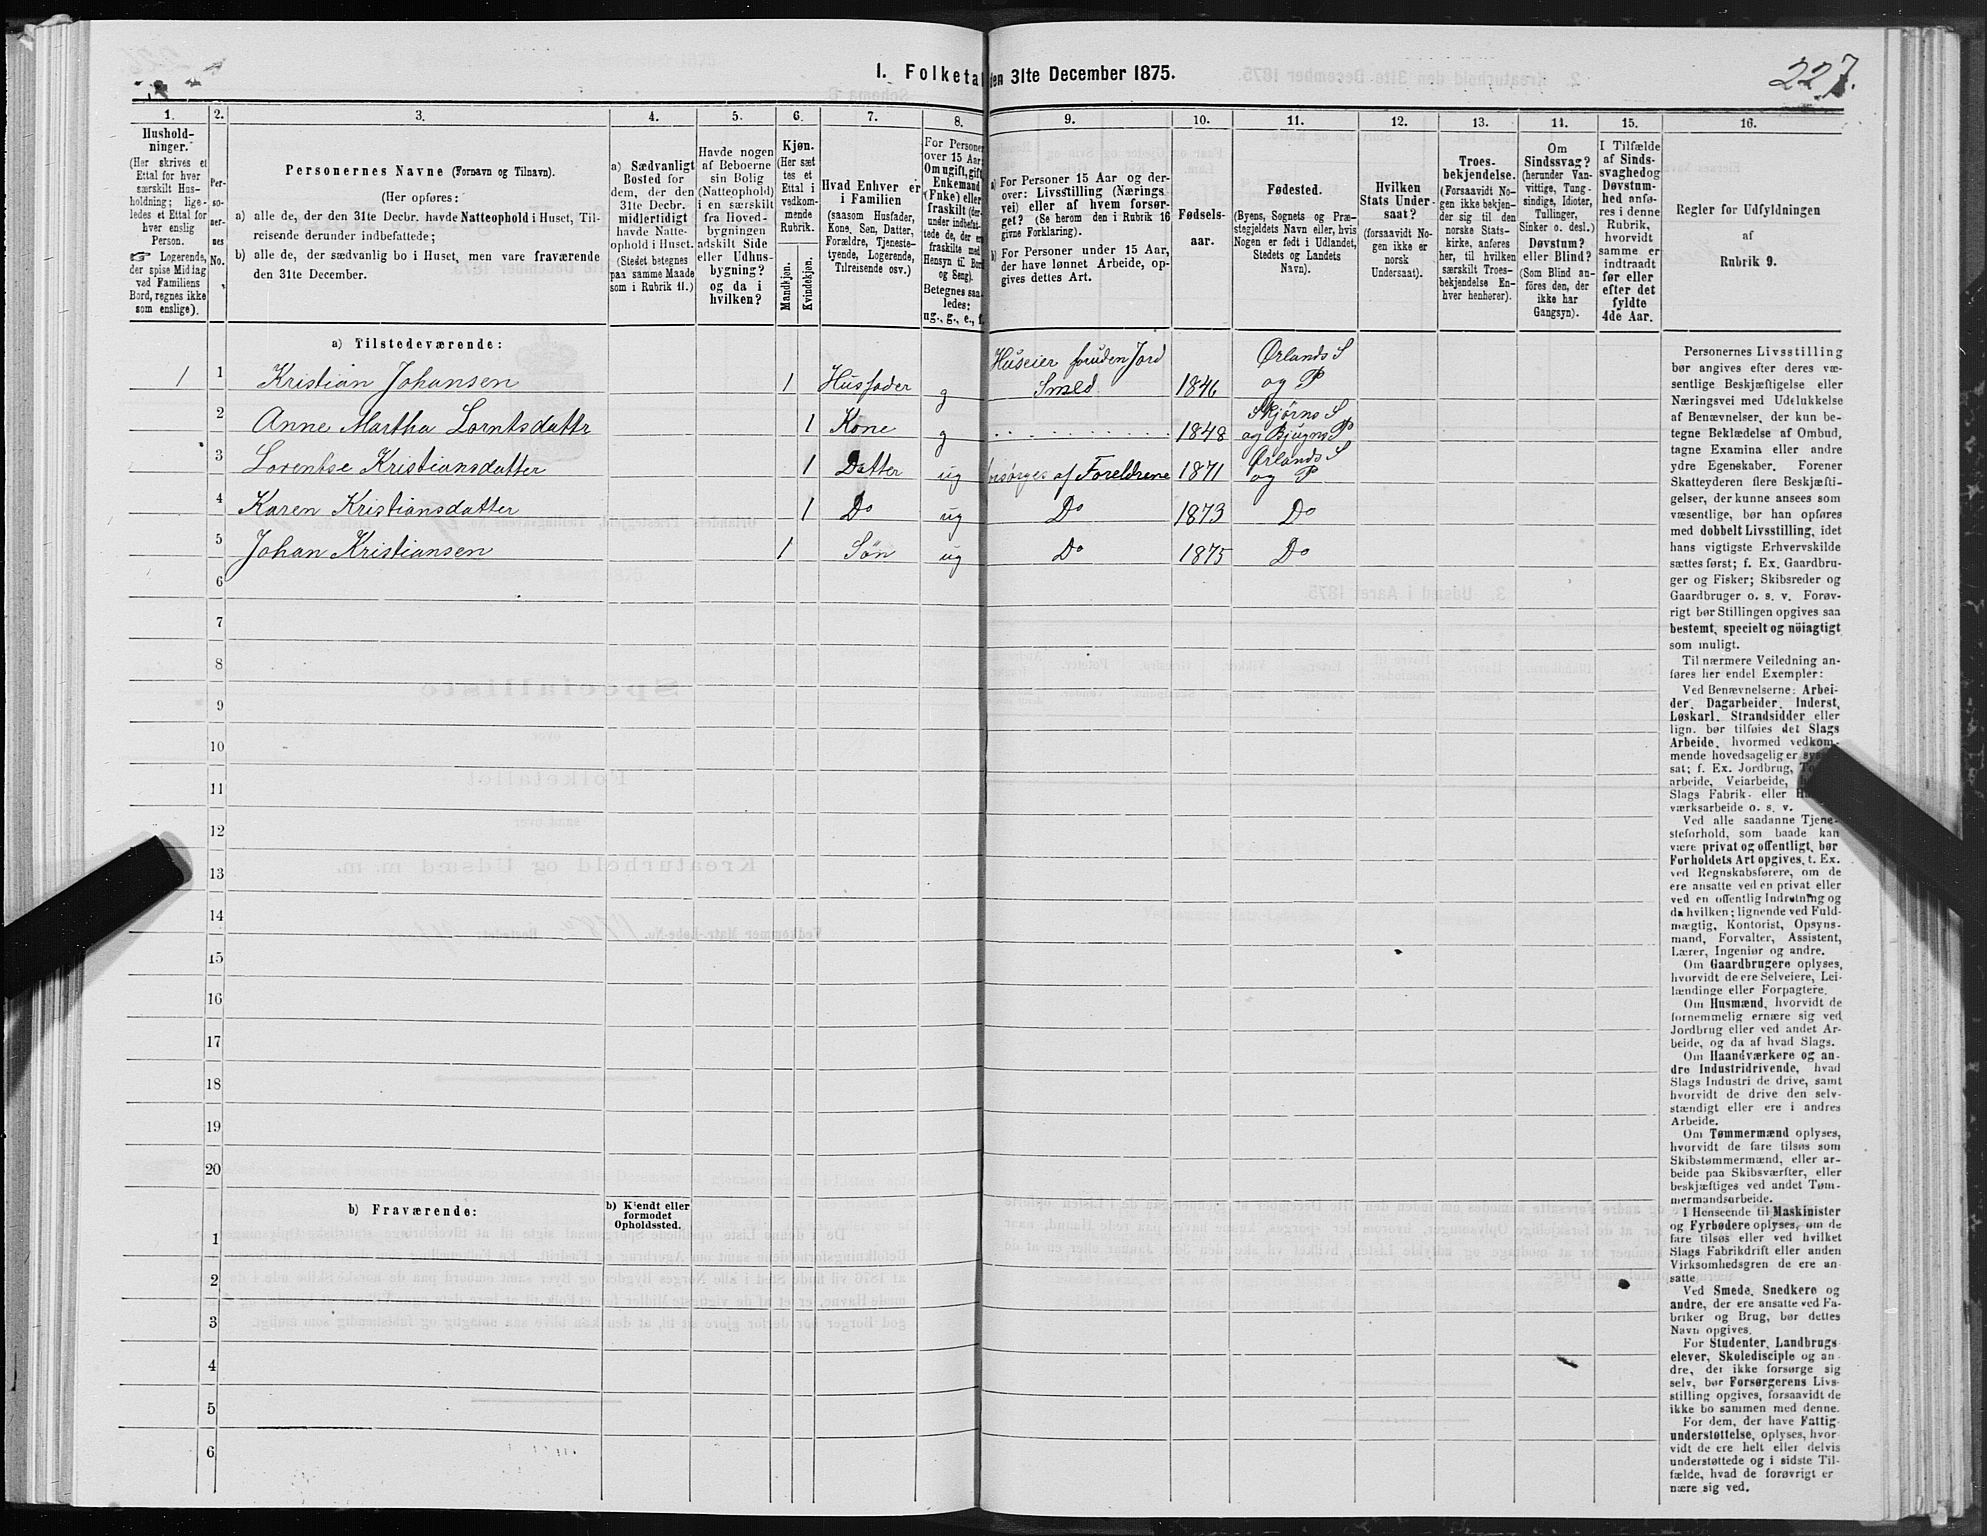 227.
I. Folketal den 31te December 1875.
1. 2. 3. 4. 5. 6. 7. 8. 9. 10. 11. 12. 13. 14. 15. 16.
Hushold-
ninger.
(Her skrives et
Ettal for hver
særskilt Hus-
holdning; lige-
ledes et Ettal for
hver enslig
Person.
☞ Logerende,
der spise Middag
ved Familiens
Bord, regnes ikke
som enslige).
Per-
so-
ner-
nes
No.
Personernes Navne (Fornavn og Tilnavn).
(Her opføres:
a) alle de, der den 31te Decbr. havde Natteophold i Huset, Til-
reisende derunder indbefattede;
b) alle de, der sædvanlig bo i Huset, men vare fraværende
den 31te December.
a) Sædvanligt
Bosted for
dem, der den
31te Decbr.
midlertidigt
havde Natte-
ophold i Huset.
(Stedet betegnes
paa samme Maade
som i Rubrik 11.)
Havde nogen
af Beboerne
sin Bolig
(Natteophold)
i en særskilt
fra Hoved-
bygningen
adskilt Side
eller Udhus-
bygning?
og da i
hvilken?
Kjøn.
(Her sæt
tes et
Ettal i
vedkom-
mende
Rubrik.
Mandkjøn.
Kvindekjøn.
Hvad Enhver er
i Familien
(saasom Husfader,
Kone, Søn, Datter,
Forældre, Tjeneste-
tyende, Logerende,
Tilreisende osv.)
For Personer
over 15 Aar:
Om ugift, gift,
Enkemand
(Enke) eller
fraskilt (der-
under indbefat-
tede de, der er
fraskilte med
Hensyn til Bord
og Seng).
Betegnes saa-
ledes:
ug., g., e., f.
a) For Personer 15 Aar og der-
over: Livsstilling (Nærings
vei) eller af hvem forsør-
get? (Se herom den i Rubrik 16
givne Forklaring).
b) For Personer under 15 Aar,
der have lønnet Arbeide, op-
gives dettes Art.
Fødsels-
aar.
Fødested.
(Byens, Sognets og Præ-
stegjeldets Navn eller, hvis
Nogen er født i Udlandet,
Stedets og Landets
Navn).
Hvilken
Stats Under-
saat?
(forsaavidt No-
gen ikke er
norsk
Undersaat).
Troes-
bekjendelse.
(Forsaavidt No-
gen ikke bekjen-
der sig til den
norske Stats-
kirke, anføres
her, til hvilken
særskilt Troes-
bekjendelse En-
hver henhører).
Om
Sindssvag?
(herunder Van-
vittige, Tung-
sindige, Idioter,
Tullinger,
Sinker o. desl.)
Døvstum?
eller Blind?
(Som Blind an-
føres den, der
ikke har
Gangsyn).
I Tilfælde
af Sinds-
svaghed og
Døvstum-
hed anfø-
res i denne
Rubrik,
hvorvidt
samme er
indtraadt
før eller
efter det
fyldte
4de Aar.
Regler for Udfyldningen
af
Rubrik 9.
a) Tilstedeværende:
1 1 Kristian Johansen 1 Husfader g Huseier foruden Jord Smed 1846 Ørlands S og P
2 Anne Martha Lorntsdatter 1 Kone g 1848 Skjørns S og Bjugns P
3 Lorentse Kristiansdatter 1 Datter ug forsørges af Foreldrene 1871 Ørlands S og P
4 Karen Kristiansdatter 1 Do ug Do 1873 Do
5 Johan Kristiansen 1 Søn ug Do 1875 Do
6
7
8
9
10
11
12
13
14
15
16
17
18
19
20
b) Fraværende: b) Kjendt eller
formodet
Opholdssted.
1
2
3
4
5
6
Personernes Livsstilling
bør angives efter deres væ-
sentlige Beskjæftigelse eller
Næringsvei med Udelukkelse
af Benævnelser, der kun be-
tegne Beklædelse af Ombud,
tagne Examina eller andre
ydre Egenskaber. Forener
Skatteyderen flere Beskjæfti-
gelser, der kunne ansees som
væsentlige, bør han opføres
med dobbelt Livsstilling, idet
hans vigtigste Erhvervskilde
sættes først; f. Ex. Gaardbru-
ger og Fisker; Skibsreder og
Gaardbruger o. s. v. Forøv-
rigt bør Stillingen opgives saa
bestemt, specielt og nöiagtigt
som muligt.
Til nærmere Veiledning an-
føres her endel Exempler:
Ved Benævnelserne: Arbei-
der, Dagarbeider, Inderst,
Løskarl, Strandsidder eller
lign. bør tilføies det Slags
Arbeide, hvormed vedkom-
mende hovedsagelig er
sat; f. Ex. Jordbrug,
arbeide, Veiarbeide,
Slags Fabrik- eller
værksarbeide o. s. v.
Ved alle saadanne Tjene-
steforhold, som baade kan
være privat og offentligt, bør
Forholdets Art opgives, t. Ex.
ved Regnskabsførere, om de
ere ansatte ved en privat eller
ved en offentlig Indretning og
da hvilken; lignende ved Fuld-
mægtig, Kontorist, Opsyns-
mand, Forvalter, Assistent,
Lærer, Ingeniør og andre.
Om Gaardbrugere oplyses,
hvorvidt de ere Selveiere, Lei-
lændinge eller Forpagtere.
Om Husmænd, hvorvidt de
fornemmelig ernære sig ved
Jordbrug eller ved andet Ar-
beide, og da af hvad Slags.
Om Haandværkere og an-
dre Industridrivende, hvad
Slags Industri de drive, samt
hvorvidt de drive den selv-
stændigt eller ere i andres
Arbeide.
Om Tømmermænd oplyses,
hvorvidt de fare tilsøs som
Skibstømmermænd, eller ar-
beide paa Skibsværfter, eller
beskjæftiges ved andet Tøm-
mermandsarbeide.
I Henseende til Maskinister
og Fyrbødere oplyses, om de
fare tilsøs eller ved hvilket
Slags Fabrikdrift eller anden
Virksomhedsgren de ere an-
satte.
Ved Smede, Snedkere og
andre, der ere ansatte ved Fa-
briker og Brug, bør dettes
Navn opgives.
For Studenter, Landbrugs-
elever, Skoledisciple og an-
dre, der ikke forsørge sig
selv, bør Forsørgerens Livs-
stilling opgives, forsaavidt de
ikke bo sammen med denne.
For dem, der have Fattig-
understøttelse, oplyses, hvor-
vidt de ere helt eller delvis
understøttede og i sidste Til-
fælde, hvad de forøvrigt er
nære sig ved.